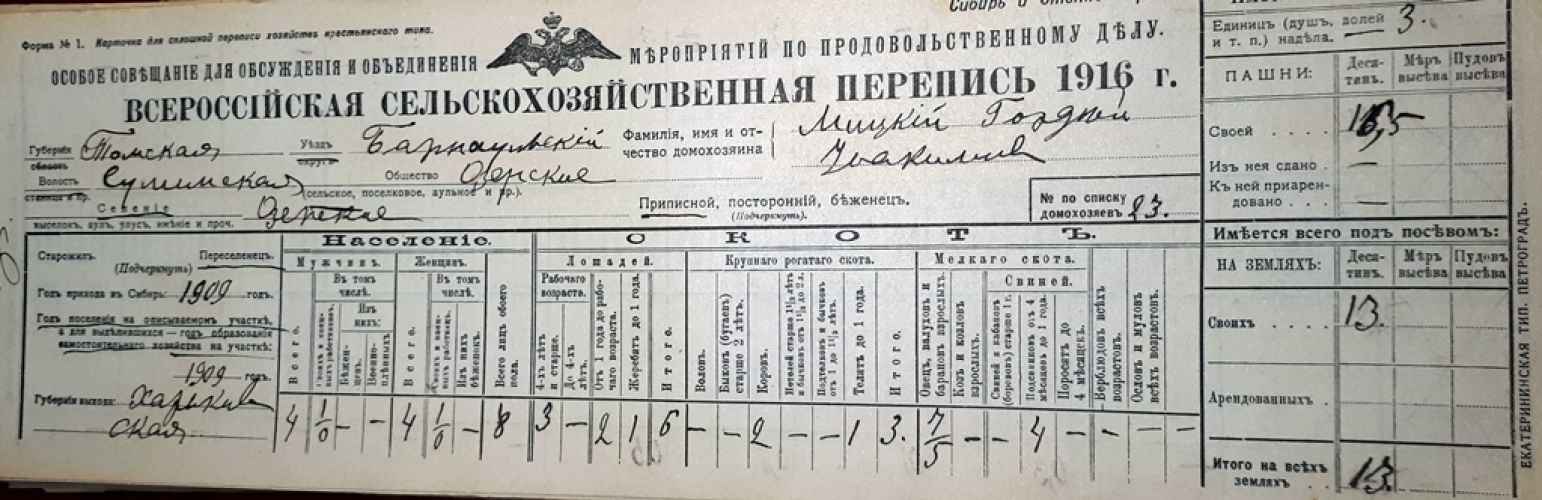 Сибирь и
Форма № 1. Карточка для сплошной переписи хозяйствъ крестьянскаго типа.
ОСОБОЕ СОВѢЩАНІЕ ДЛЯ ОБСУЖДЕНІЯ И ОБЪЕДИНЕНІЯ МѢРОПРІЯТІЙ ПО ПРОДОВОЛЬСТВЕННОМУ ДѢЛУ.
ВСЕРОССІЙСКАЯ СЕЛЬСКОХОЗЯЙСТВЕННАЯ ПЕРЕПИСЬ 1916 г.
Губернія Томская Уѣздъ Барнаульскій Фамилія, имя и от-
область округъ чество домохозяина
Мицкій Гордѣй
Волость Общество Озерское
станица и пр. (сельское, поселковое, аульное и пр.)
Селеніе Озерское
выселокъ, аулъ, улусъ, имѣніе и проч.
Приписной, посторонній, бѣженецъ.
(Подчеркнуть).
№ по списку
домохозяевъ 23.
Старожилъ. Переселенецъ.
(Подчеркнуть)
Годъ прихода въ Сибирь: 1909 годъ.
Годъ поселенія на описываемомъ участкѣ,
а для выдѣлившихся — годъ образованія
самостоятельнаго хозяйства на участкѣ:
1909 годъ.
Губернія выхода: Харьков
ская
Населеніе.
Мужчинъ. Женщинъ.
Всего.
Въ томъ числѣ.
Изъ нихъ:
Бѣжен-
цевъ.
Военно-
плѣнныхъ
Всего.
Въ томъ числѣ.
Изъ нихъ
бѣженокъ.
Всего лицъ обоего
пола.
4 1/0 – – 4 1/0 – 8
СКОТЪ.
Лошадей.
Рабочаго
возраста.
4-хъ лѣтъ
и старше.
До 4-хъ
лѣтъ.
Отъ 1 года до рабо-
чаго возраста.
Жеребятъ до 1 года.
Итого.
3 – 2 1 6
Крупнаго рогатаго скота.
Воловъ.
Быковъ (бугаевъ)
старше 2 лѣтъ.
Коровъ.
Нетелей старше 1½ лѣтъ
и бычковъ отъ 1½ до 2 л.
Подтелковъ и бычковъ
отъ 1 до 1½ лѣтъ.
Телятъ до 1 года.
Итого.
– – 2 – – 1 3.
Мелкаго скота.
Овецъ, валуховъ и
барановъ взрослыхъ.
Козъ и козловъ
взрослыхъ.
Свиней.
Свиней и кабановъ
(борововъ) старше 1 г.
Подсвинковъ отъ 4
мѣсяцевъ до 1 года.
Поросятъ до
4 мѣсяцевъ.
Верблюдовъ всѣхъ
возрастовъ.
Ословъ и муловъ
всѣхъ возрастовъ.
7/5 – – 4 – – – –
Единицъ (душъ, долей
и т. п.) надѣла. 3.
ПАШНИ: Деся-
тинъ. Мѣръ
высѣва Пудовъ
высѣва
Своей
Изъ нея сдано . —
Къ ней приарен-
довано . —
Имѣется всего подъ посѣвомъ:
НА ЗЕМЛЯХЪ: Деся-
тинъ. Мѣръ
высѣва Пудовъ
высѣва
Своихъ 13.
Арендованныхъ .
Итого на всѣхъ
земляхъ 13.
ЕКАТЕРИНИНСКАЯ ТИП. ПЕТРОГРАДЪ.